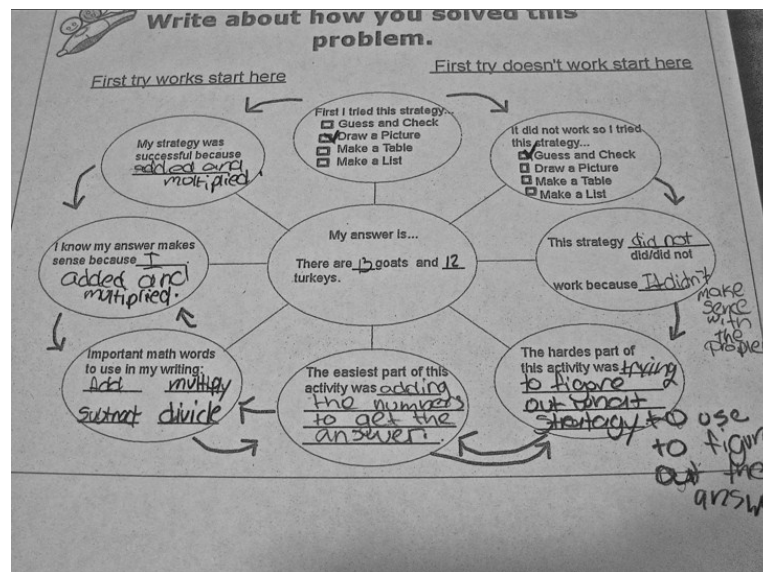 Write about how you solved this
problem.
First try works start here
First try doesn't work start here
First I tried this strategy...
Guess and Check
Draw a Picture
Make a Table
Make a List
It did not work so I tried
this strategy...
Guess and Check
Draw a Picture
Make a Table
Make a List
My strategy was
successful because
added and
moltiplied.
My answer is...
There are 13 goats and 12
turkeys.
I know my answer makes
sense because I
added and
multiplied.
This strategy did not
did/did not
work because It didn't
make
sence
with
the
Important math words
to use in my writing:
Add multiply
subtract divide
The easiest part of this
activity was adding
the numbers
to get the
answer.
The hardes part of
this activity was trying
to figure
out what
to use
to figur
out the
answ